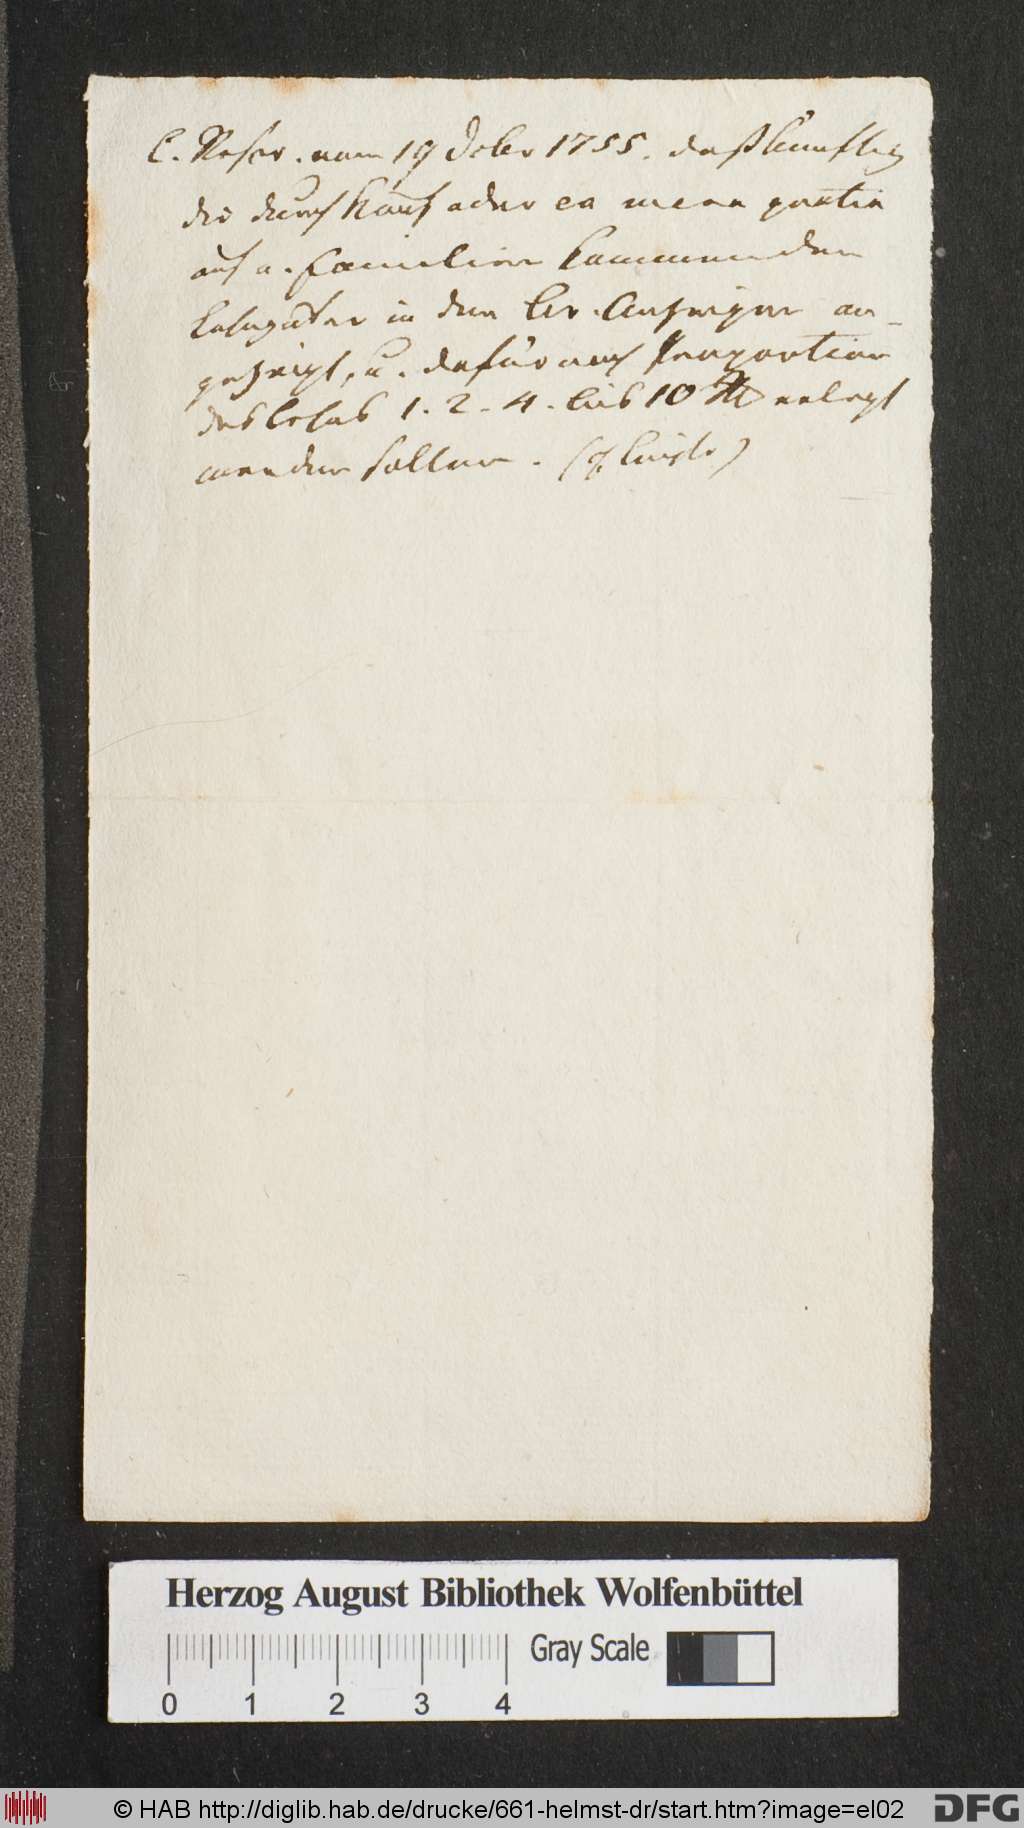 C. Rescr. vom 19 Octbr 1755. daß künftig
die durch Kauf oder ex mera gratia
auf a. Familien kommenden
Lehngüter in den Br. Anzeigen an-
gezeigt, u. dafür nach Proportion
des Lehns 1. 2. 4. bis 10 erlegt
werden sollen.
Herzog August Bibliothek Wolfenbüttel
Gray Scale
0 1 2 3 4
© HAB http://diglib.hab.de/drucke/661-helmst-dr/start.htm?image=el02 DFG